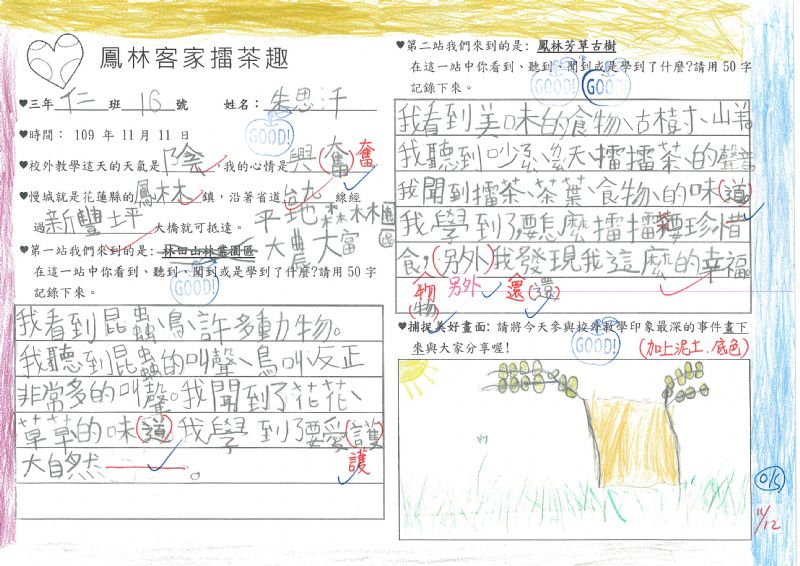 鳳林客家擂茶趣
♥三年 仁 班 16 號 姓名：朱思汗
GOOD!
♥時間： 109 年 11 月 11 日
♥校外教學這天的天氣是 陰 ，我的心情是 興(奮) 奮
♥慢城就是花蓮縣的 鳳林 鎮，沿著省道 台九 線經
過 新豐坪 大橋就可抵達。
平地森林園區
大農大富
♥第一站我們來到的是: 林田山林業園區
在這一站中你看到、聽到、聞到或是學到了什麼?請用 50 字
記錄下來。
GOOD!
我看到昆蟲、鳥、許多動物。
我聽到昆蟲的叫聲、鳥叫、反正
非常多的叫聲。我聞到了花花、
草草的味(道)我學到了要愛(護)
護
大自然。
♥第二站我們來到的是: 鳳林芳草古樹
在這一站中你看到、聽到、聞到或是學到了什麼?請用 50 字
記錄下來。
GOOD! GOOD!
我看到美味的食物、古樹、山羊
我聽到吵吵、擂擂茶的聲音
我聞到擂茶、茶葉、食物、的味(道)
我學到了要怎麼擂擂要珍惜
食，(另外)我發現我這麼的幸福。
物 另外 還(還)
(物)
♥捕捉美好畫面: 請將今天參與校外教學印象最深的事件畫下
來與大家分享喔!
GOOD!
(加上泥土、底色)
11/12